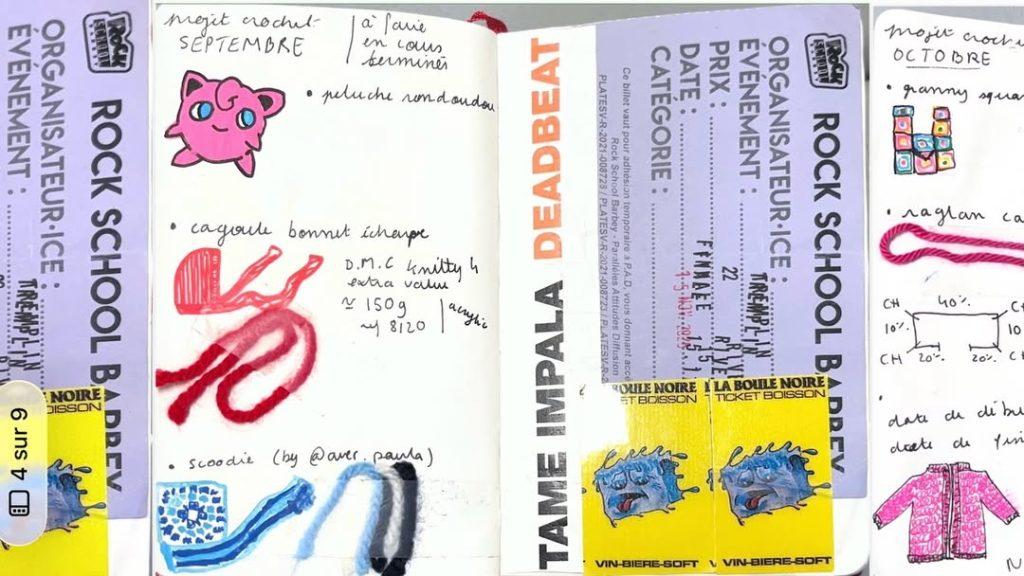 Rock School
ROCK SCHOOL BARBEY
ORGANISATEUR·ICE :
ÉVÉNEMENT :
TREMPLIN
BOULE NOIRE
BOISSON
4 sur 9
projet crochet
SEPTEMBRE
à faire
en cours
terminés
• peluche rondoudou
• cagoule bonnet écharpe
D.M.C knitty 4
extra value
≃ 150g
~ 8120
acrylic
• scoodie (by @aver.paula)
TAME IMPALA DEADBEAT
Rock School
ROCK SCHOOL BARBEY
ORGANISATEUR·ICE :
ÉVÉNEMENT :
TREMPLIN
PRIX :
22
DATE :
CATÉGORIE :
Ce billet vaut pour adhésion temporaire à P.A.D, vous donnant accè
Rock School Barbey - Parallèles Attitudes Diffusion
PLATESV-R-2021-008728 / PLATESV-R-2021-008723 / PLATESV-R-2
BOULE NOIRE
ET BOISSON
VIN-BIERE-SOFT
LA BOULE NOIRE
TICKET BOISSON
VIN-BIERE-SOFT
projet croche
OCTOBRE
• granny squar
• raglan ca
CH
40%
10%
10
CH
20%
20%
CH
date de débu
date de fin